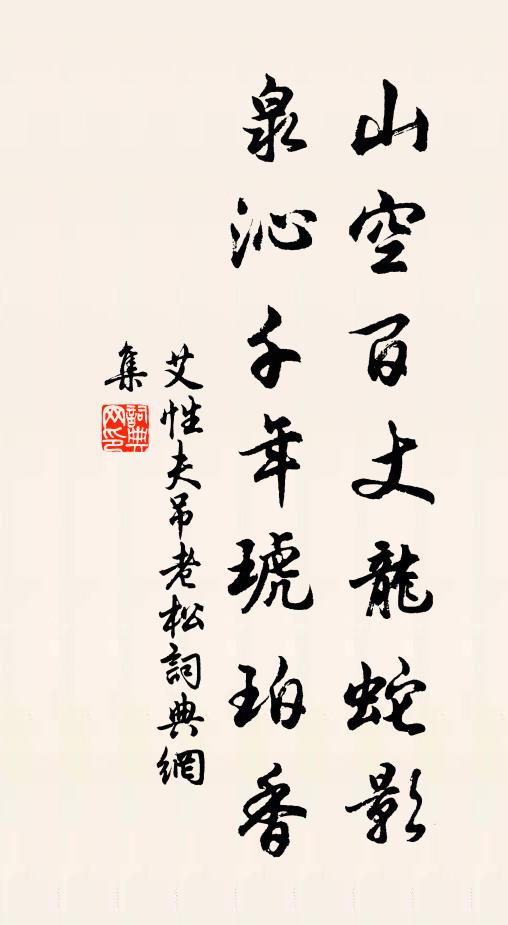 山空百丈龍蛇影
泉沁千年琥珀香
艾性夫吊老松詞典網
集
詞典网印